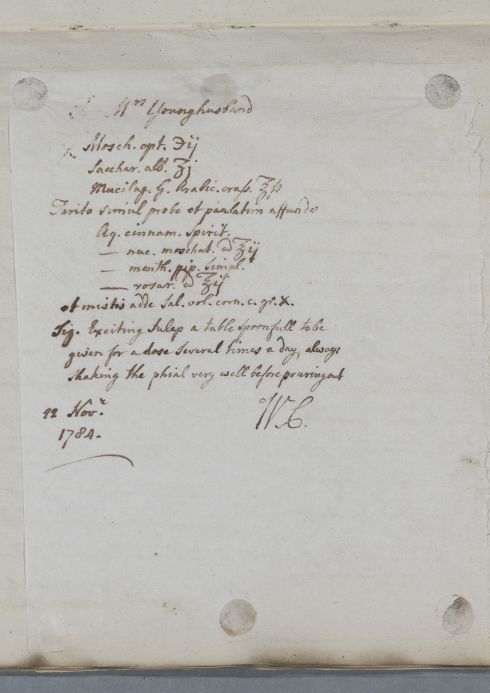 Mrs Younghusband
℞ Mosch. opt. ℈ij
Sacchar. alb. ʒj
Mucilag. G. Arabic. crass. ℥ſs
Terito simul probe et paulatim affunde
Aq. cinnam. spirit.
— nuc. moschat. a̅ ℥ij
— menth. pip. simpl.
— rosar. a̅ ℥ij
et mistis adde Sal. vol. corn. c. gr. x.
Sig. Exciting Julep a table spoonfull to be
given for a dose several times a day, always
shaking the phial very well before pouring out
22 Novr.
1784.
WC.